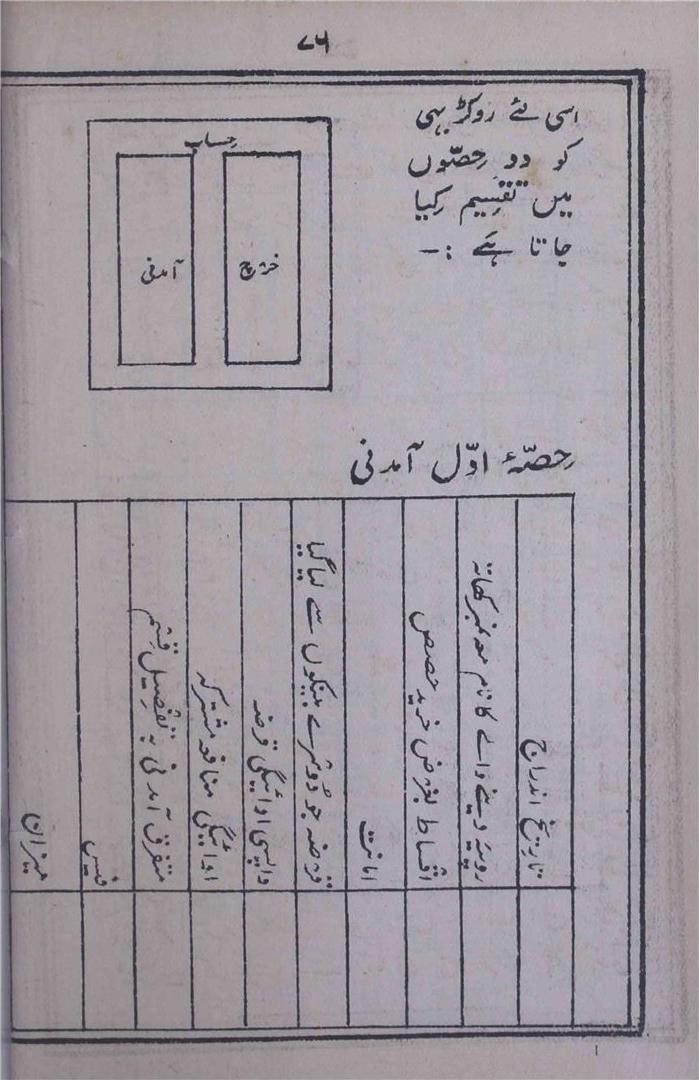 ۷۶
اسی لئے روکڑ بہی
کو دو حِصّوں
میں تقسِیم کِیا
جاتا ہَے :-
حِساب
خرچ
آمدنی
حِصّۂ اوّل آمدنی
تاریخ اندراج
روپیہ دینے والے کا نام معہ نمبر کھاتہ
اقساط بغرض خرید حصص
امانت
قرضہ جو دُوسرے بینکوں سے لیا گیا
واپسی ادائیگی قرضہ
ادائیگی منافع مشترکہ
متفرق آمدنی بہ تفصِیل قِسم
فیس
میزان